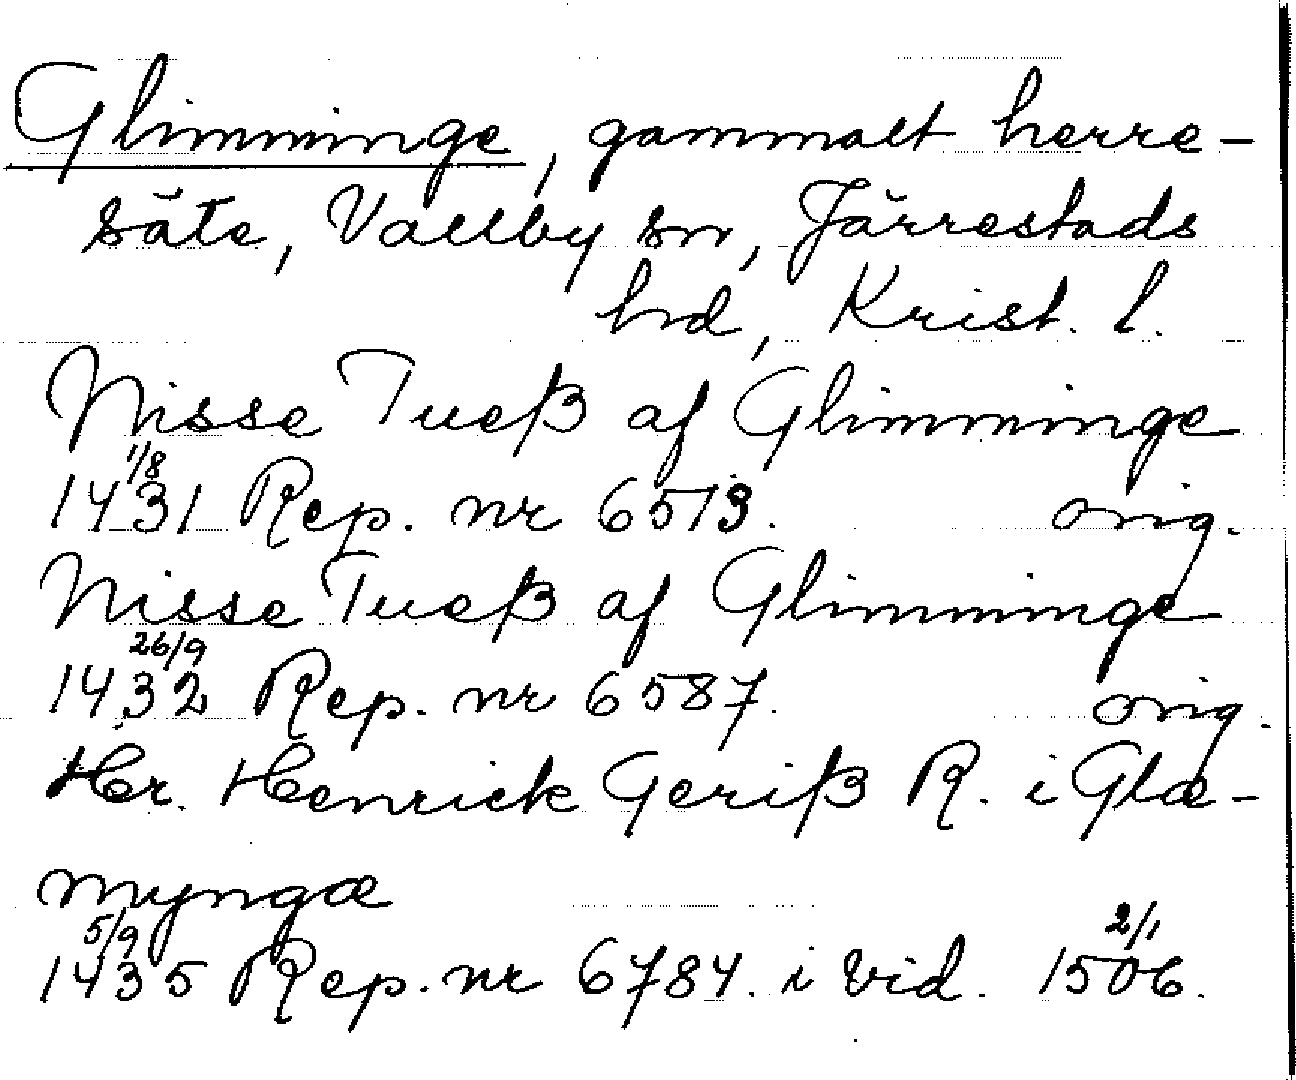 Glimminge, gammalt herre-
säte, Vallby sn, Järrestads
hd, Krist. l.
Nisse Tueß af Glimminge
1/8
1431 Rep. nr 6513. orig.
Nisse Tueß af Glimminge
26/9
1432 Rep. nr 6587. orig.
Hr. Henrick Geriß R. i Glæ-
myngæ
5/9 2/1
1435 Rep. nr 6784. i vid. 1506.